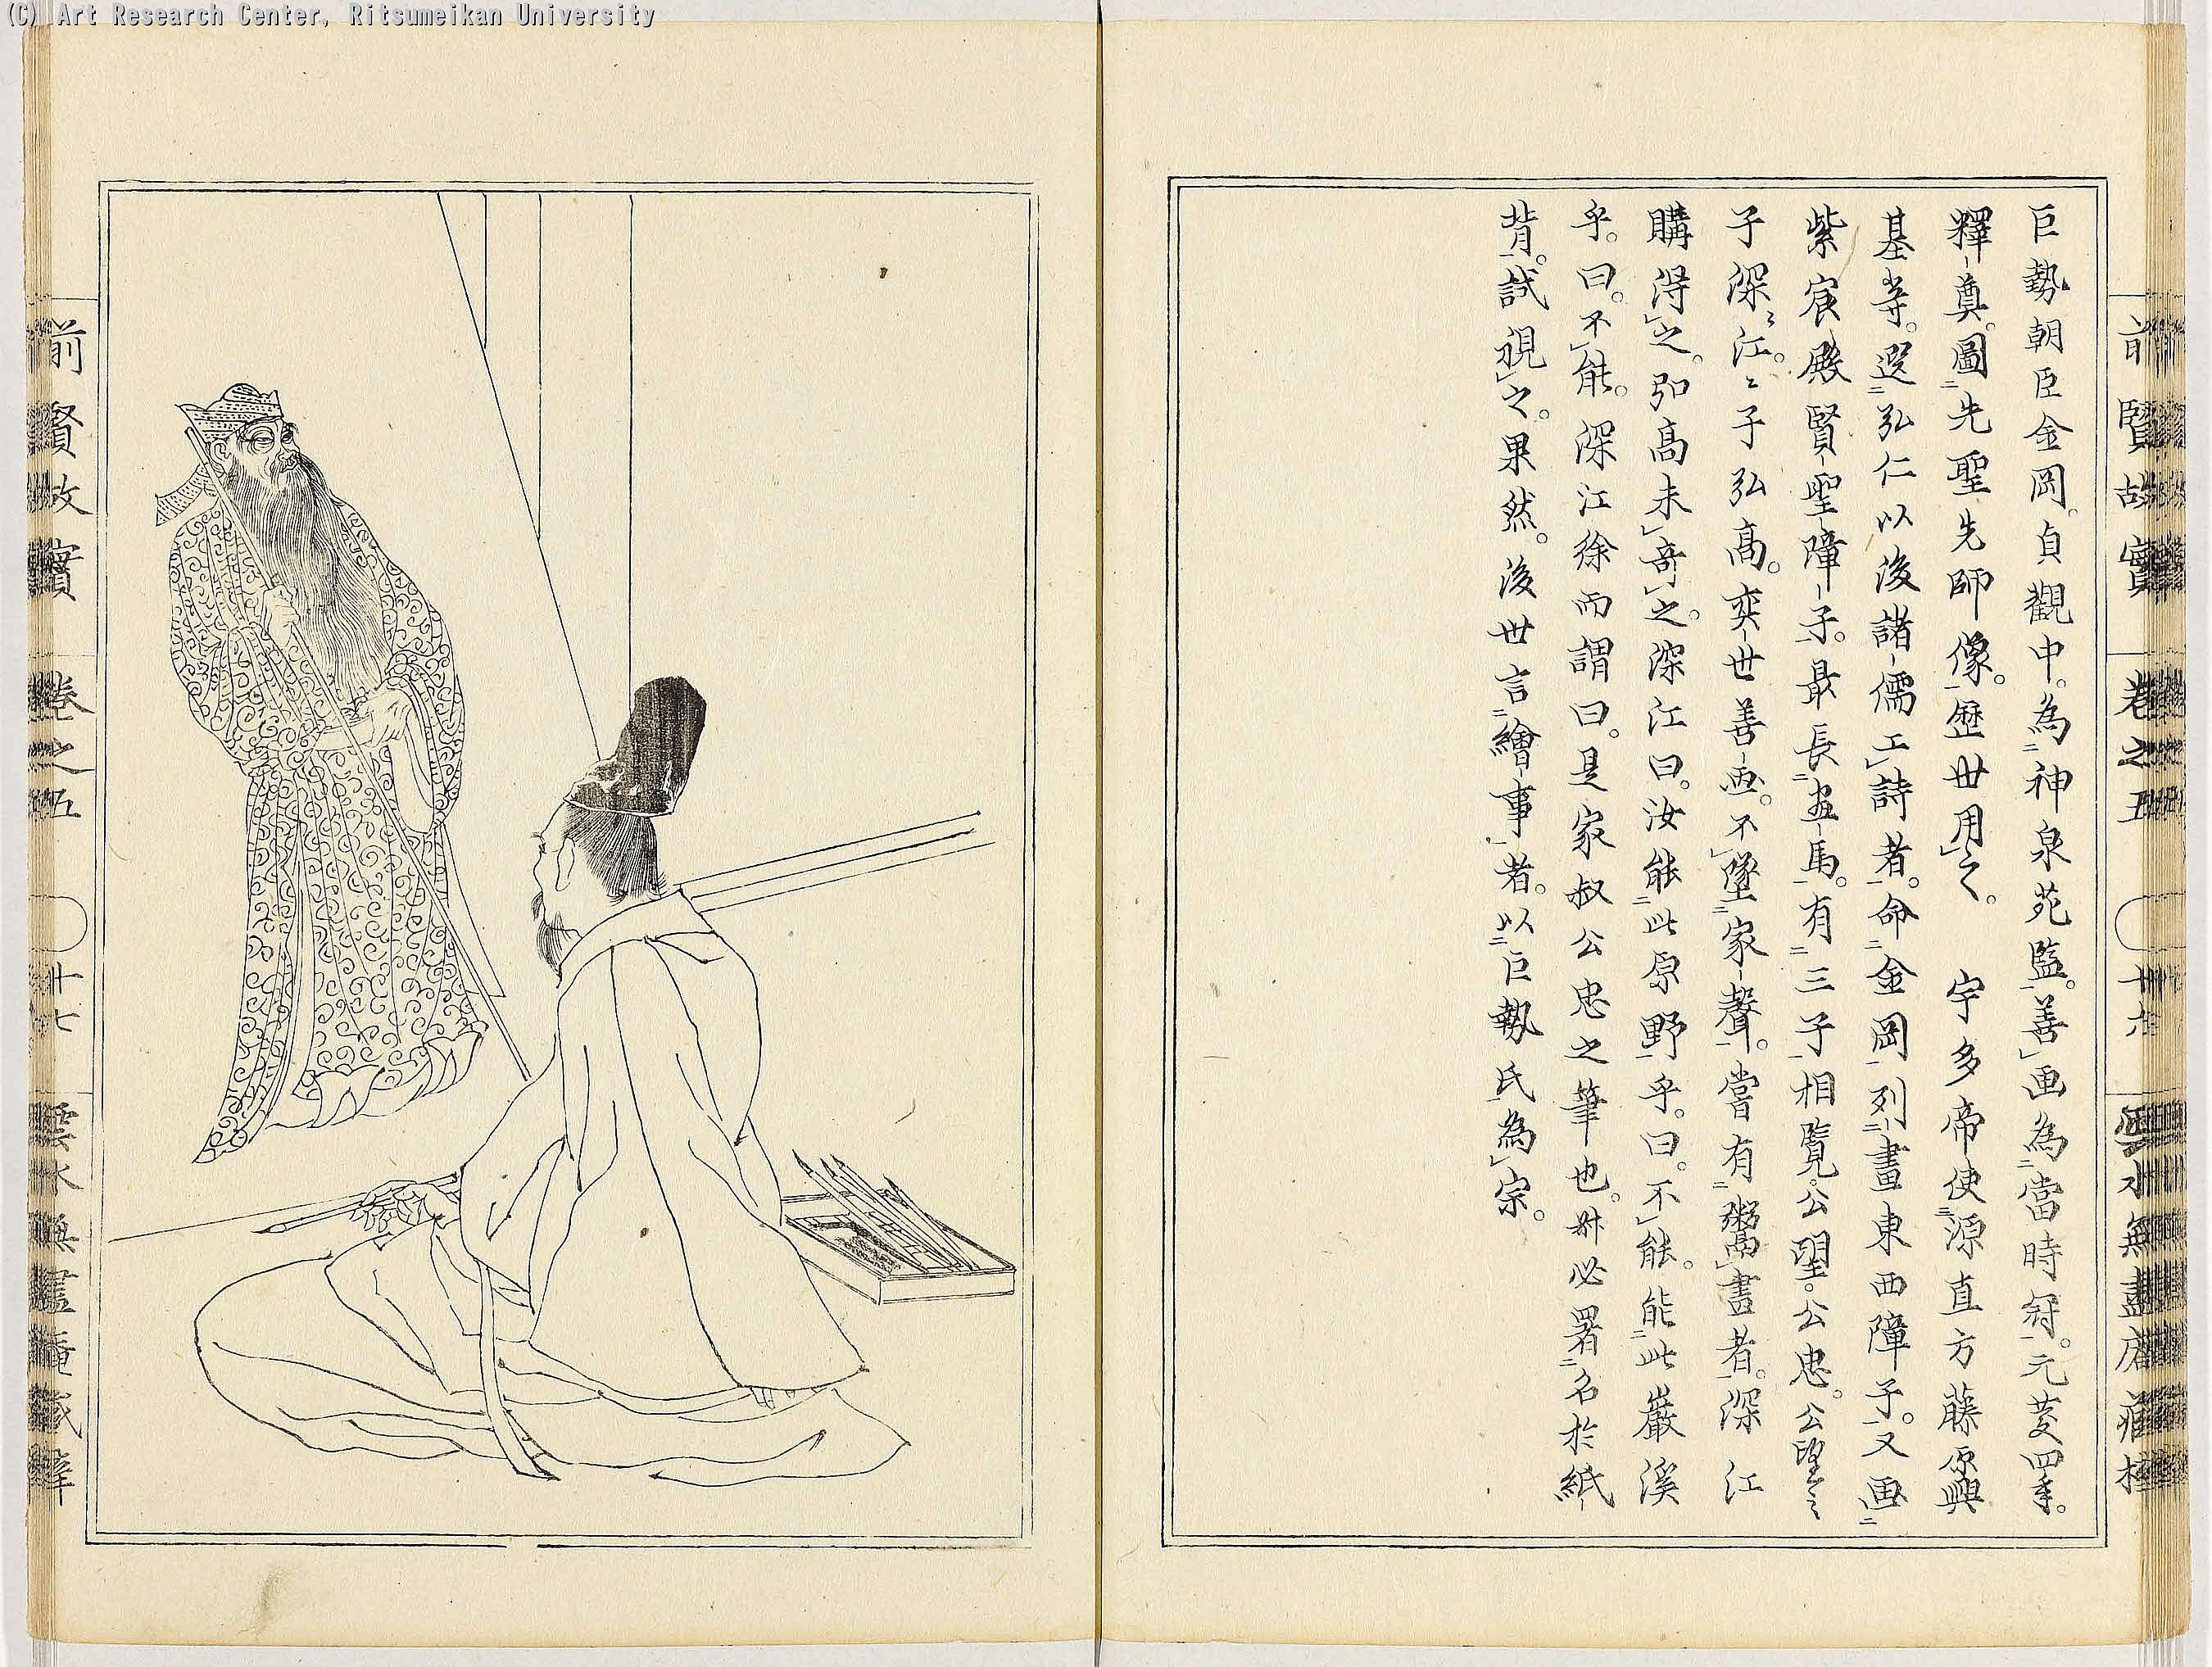 (C) Art Research Center, Ritsumeikan University
前賢故實 卷之五 十六 雲水無盡庵
巨勢朝臣金岡。貞觀中。為神泉苑監。善画為當時冠。元慶四年。
釋奠。圖先聖先師像。歴世用之。 宇多帝使源直方藤原興
基等。選弘仁以後諸儒工詩者。命金岡列畫東西障子。又画
紫宸殿賢聖障子。最長畫馬。有三子相覧。公望。公忠。公望之
子深江。〻子弘高。奕世善画。不墜家聲。當有鬻畫者。深江
購得之。弘高未奇之。深江曰。汝能此原野乎。曰。不能。能此巖溪
乎。曰。不能。深江徐而謂曰。是家叔公忠之筆也。必署名於紙
背。試視之。果然。後世言繪事者。以巨勢氏為宗。
前賢故實 卷之五 十七 雲水無盡庵藏梓